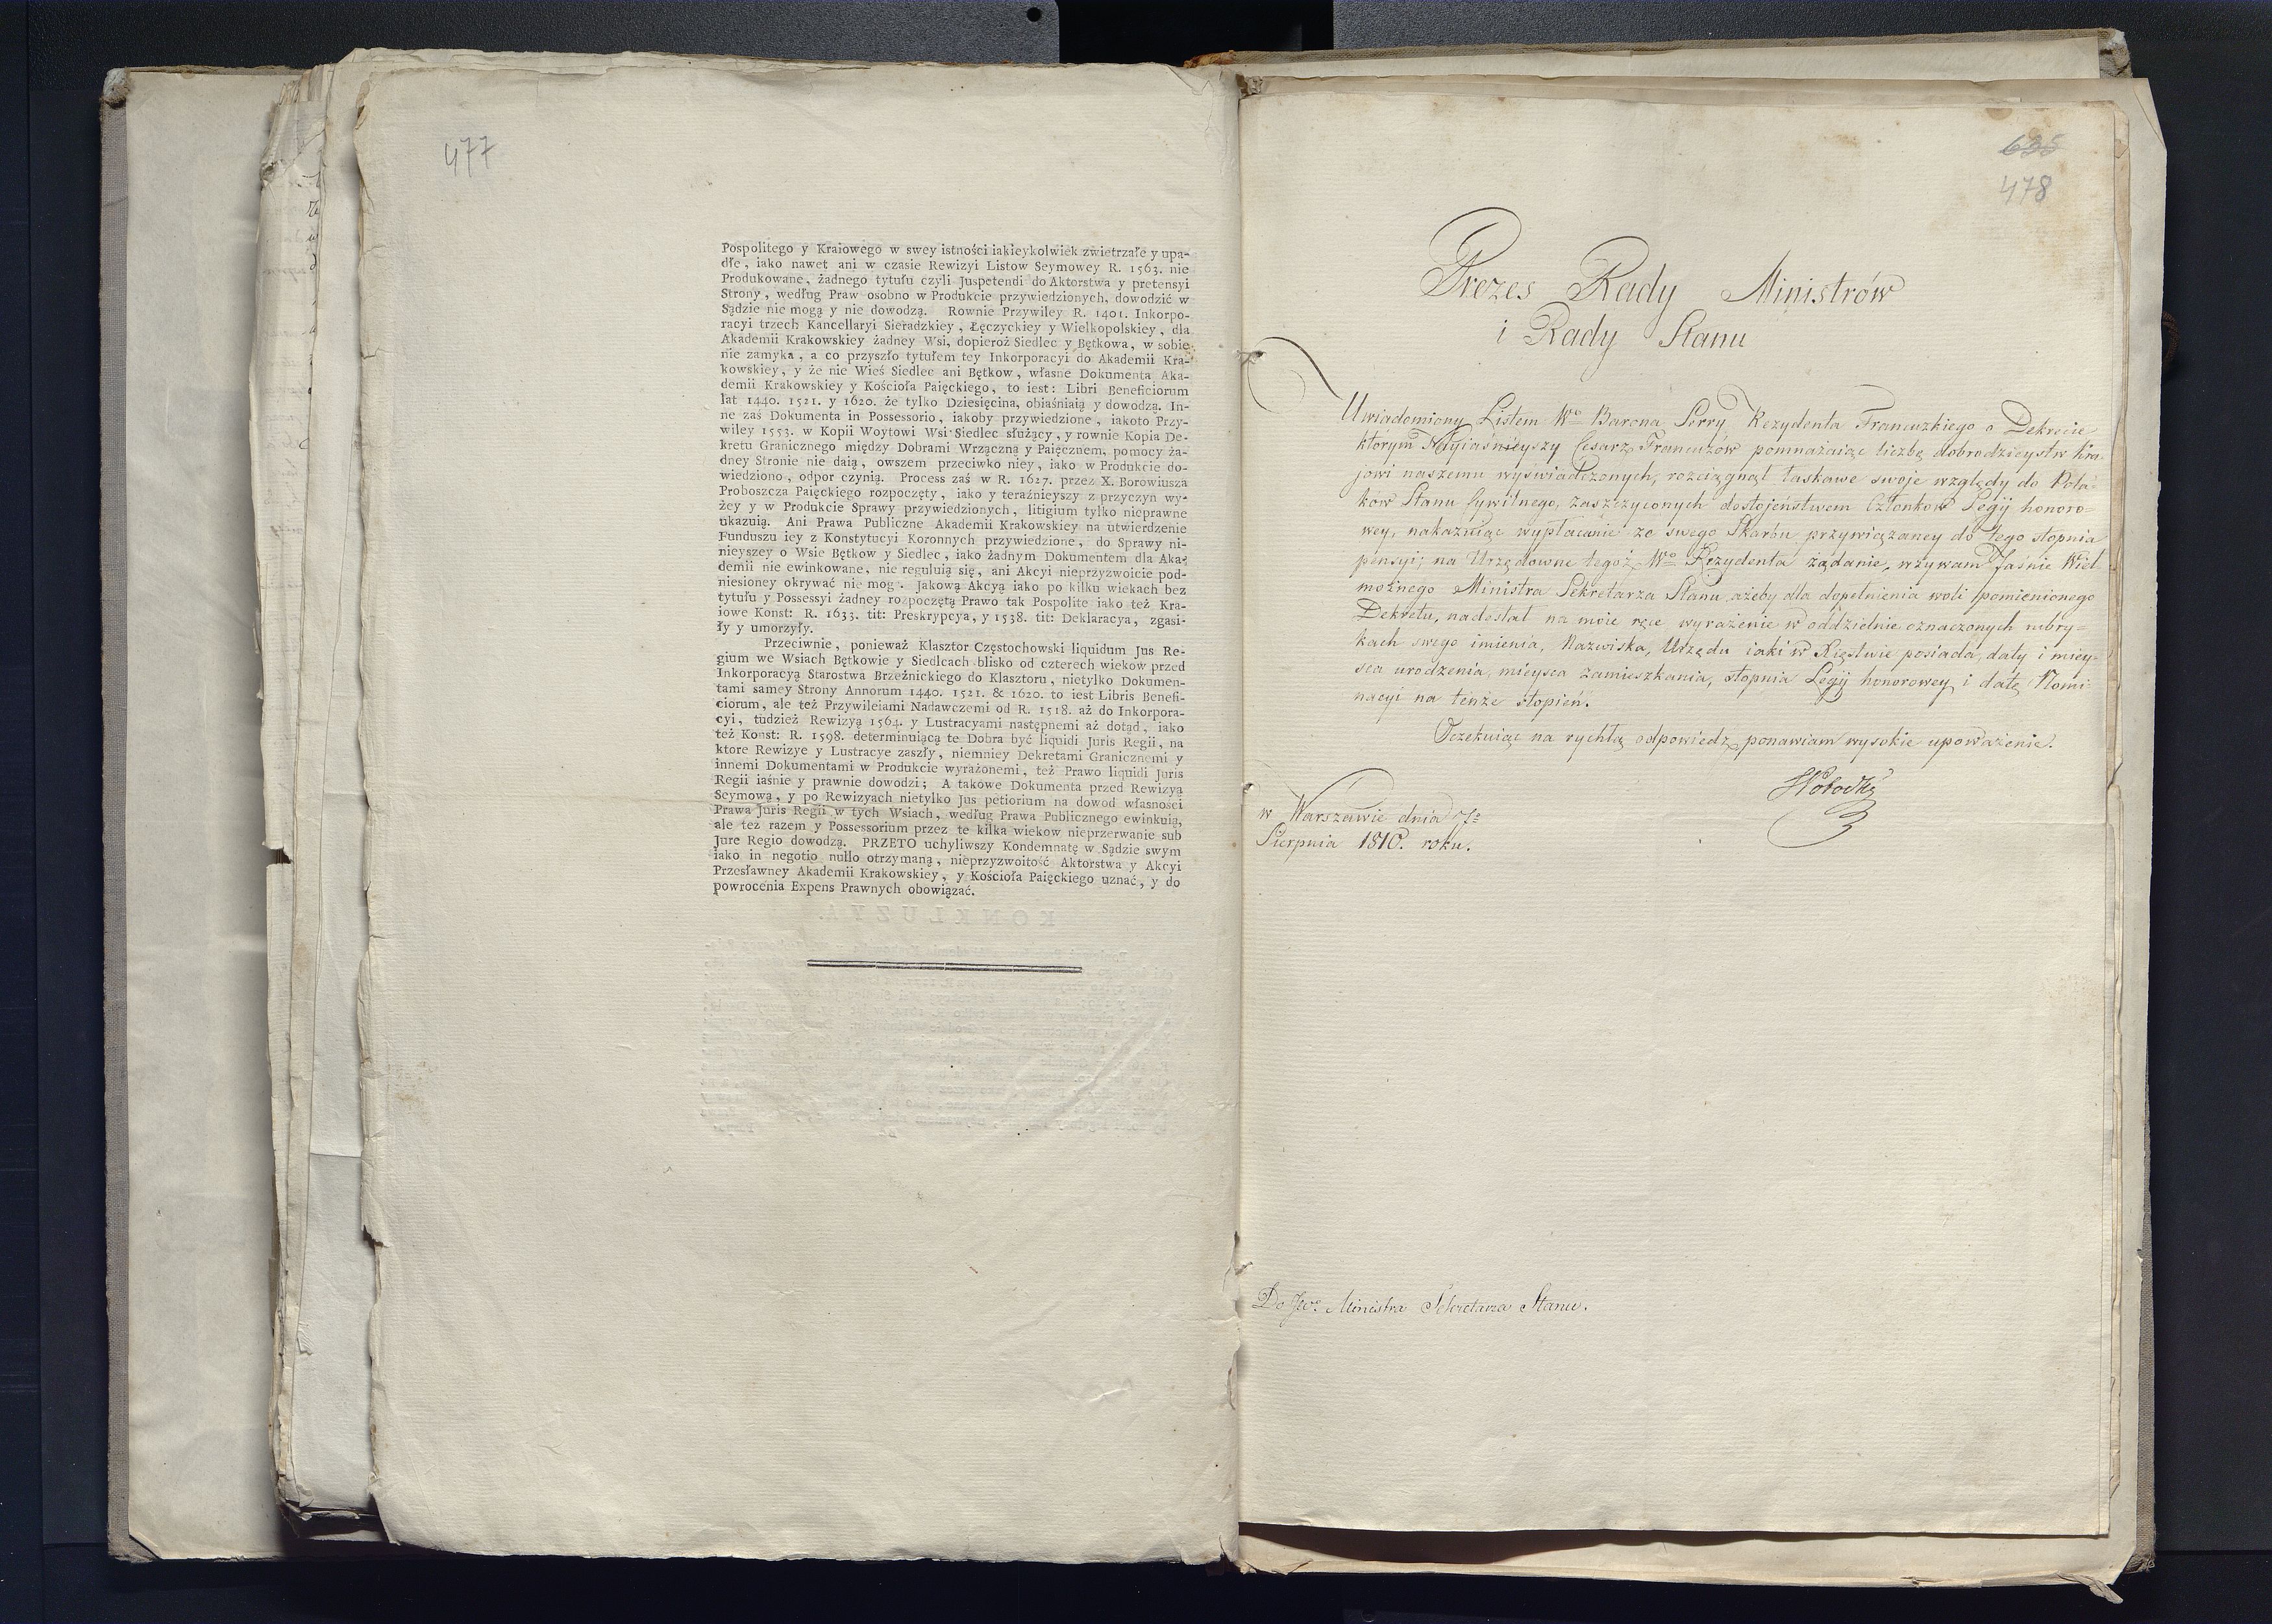 477
Pospolitego y Kraiowego w swey istności iakieykolwiek zwietrzałe y upa-
dłe, iako nawet ani w czasie Rewizyi Listow Seymowey R. 1563. nie
Produkowane, żadnego tytułu czyli Juspetendi do Aktorstwa y pretensyi
Strony, według Praw osobno w Produkcie przywiedzionych, dowodzić w
Sądzie nie mogą y nie dowodzą. Rownie Przywiley R. 1401. Inkorpo-
racyi trzech Kancellaryi Sieradzkiey, Łęczyckiey y Wielkopolskiey, dla
Akademii Krakowskiey żadney Wsi, dopieroż Siedlec y Bętkowa, w sobie
nie zamyka, a co przyszło tytułem tey Inkorporacyi do Akademii Kra-
kowskiey, y że nie Wieś Siedlec ani Bętkow, własne Dokumenta Aka-
demii Krakowskiey y Kościoła Paięckiego, to iest: Libri Beneficiorum
lat 1440. 1521. y 1620. że tylko Dziesięcina, obiaśniaią y dowodzą. In-
ne zaś Dokumenta in Possessorio, iakoby przywiedzione, iakoto Przy-
wiley 1553. w Kopii Woytowi Wsi Siedlec służący, y rownie Kopia De-
kretu Granicznego między Dobrami Wrzączną y Paięcznem, pomocy ża-
dney Stronie nie daią, owszem przeciwko niey, iako w Produkcie do-
wiedziono, odpor czynią. Process zaś w R. 1627. przez X. Borowiusza
Proboszcza Paięckiego rozpoczęty, iako y teraźnieyszy z przyczyn wy-
żey y w Produkcie Sprawy przywiedzionych, litigium tylko nieprawne
ukazuią. Ani Prawa Publiczne Akademii Krakowskiey na utwierdzenie
Funduszu iey z Konstytucyi Koronnych przywiedzione, do Sprawy ni-
nieyszey o Wsie Bętkow y Siedlec, iako żadnym Dokumentem dla Aka-
demii nie ewinkowane, nie reguluią się, ani Akcyi nieprzyzwoicie pod-
niesioney okrywać nie mogą. Jakową Akcyą iako po kilku wiekach bez
tytułu y Possessyi żadney rozpoczętą Prawo tak Pospolite iako też Kra-
iowe Konst: R. 1633. tit: Preskrypcya, y 1538. tit: Deklaracya, zgasi-
ły y umorzyły.
Przeciwnie, ponieważ Klasztor Częstochowski liquidum Jus Re-
gium we Wsiach Bętkowie y Siedlcach blisko od czterech wiekow przed
Inkorporacyą Starostwa Brzeźnickiego do Klasztoru, nietylko Dokumen-
tami samey Strony Annorum 1440. 1521. & 1620. to iest Libris Benefi-
ciorum, ale też Przywileiami Nadawczemi od R. 1518. aż do Inkorpora-
cyi, tudzież Rewizyą 1564. y Lustracyami następnemi aż dotąd, iako
też Konst: R. 1598. determinuiącą te Dobra być liquidi Juris Regii, na
ktore Rewizye y Lustracye zaszły, niemniey Dekretami Granicznemi y
innemi Dokumentami w Produkcie wyrażonemi, też Prawo liquidi Juris
Regii iaśnie y prawnie dowodzi; A takowe Dokumenta przed Rewizyą
Seymową, y po Rewizyach nietylko Jus petiorium na dowod własności
Prawa Juris Regii w tych Wsiach, według Prawa Publicznego ewinkuią,
ale też razem y Possessorium przez te kilka wiekow nieprzerwanie sub
Jure Regio dowodzą. PRZETO uchyliwszy Kondemnatę w Sądzie swym
iako in negotio nullo otrzymaną, nieprzyzwoitość Aktorstwa y Akcyi
Przesławney Akademii Krakowskiey, y Kościoła Paięckiego uznać, y do
powrocenia Expens Prawnych obowiązać.
478
Prezes Rady Ministrów
i Rady Stanu
Uwiadomiony Listem Wo Barona Serry Rezydenta Francuzkiego o Dekrecie
którym Nayiaśnieyszy Cesarz Francuzów pomnażaiąc liczbę dobrodzieystw Kra-
jowi naszemu wyświadczonych, rozciągnął łaskawe swoje względy do Pola-
ków Stanu Cywilnego, zaszczyconych dostojeństwem Członków Legij honoro-
wey, nakazuiąc wypłacanie ze swego Skarbu przywiązaney do tego stopnia
pensyi; na Urzędowne tegoż Wo Rezydenta żądanie, wzywam Jaśnie Wiel-
możnego Ministra Sekretarza Stanu, ażeby dla dopełnienia woli pomienionego
Dekretu, nadesłał na moie ręce wyrażenie w oddzielnie oznaczonych rubry-
kach swego imienia, Nazwiska, Urzędu iaki w Xięstwie posiada, daty i miey-
sca urodzenia, mieysca zamieszkania, stopnia Legij honorowey i datę Nomi-
nacyi na tenże stopień.
Oczekuiąc na rychłą odpowiedź, ponawiam wysokie upoważenie.
w Warszawie dnia 7o
Sierpnia 1810. roku.
Do JWo Ministra Sekretarza Stanu.